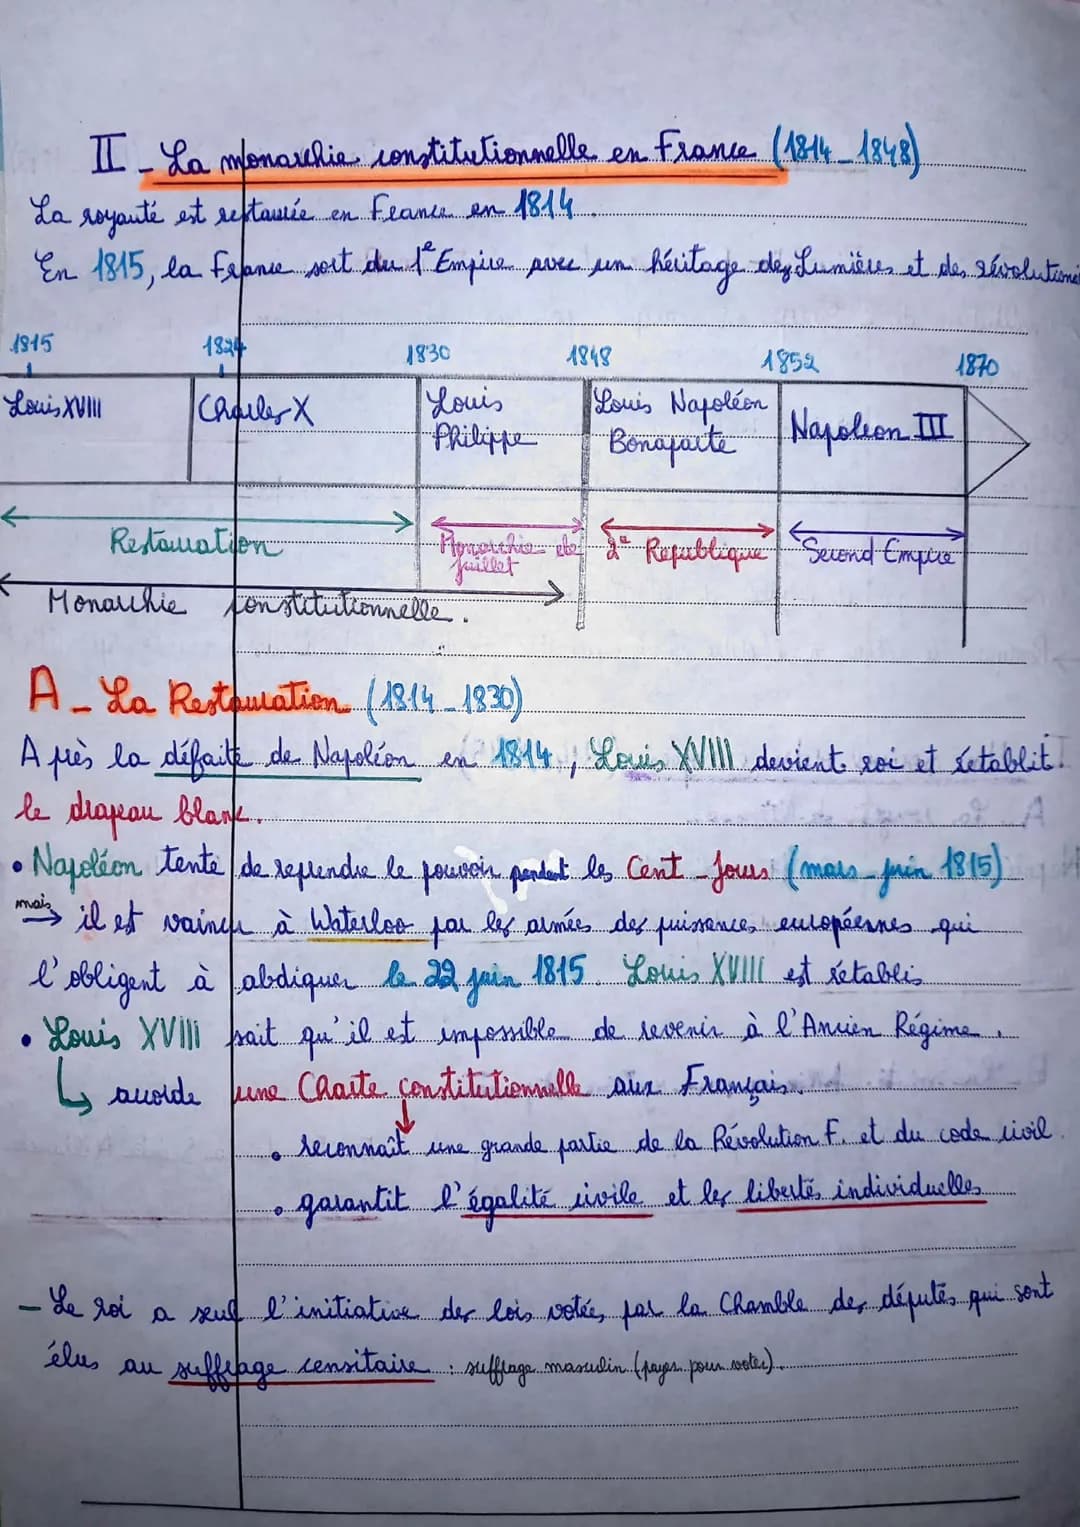 II - La monarchie constitutionnelle en France (1814 - 1848)
La royauté est restaurée en France en 1814.
En 1815, la France sort du 1e Empire avec un héritage des Lumières et des révolutions
1815 1824 1830 1848 1852 1870
Louis XVIII Charles X Louis Philippe Louis Napoléon Bonaparte Napoleon III
Restauration Monarchie de juillet 2e Republique Second Empire
Monarchie constitutionnelle.
A - La Restauration (1814 - 1830)
Après la défaite de Napoléon en 1814, Louis XVIII devient roi et rétablit
le drapeau blanc.
• Napoléon tente de reprendre le pouvoir pendant les Cent-Jours (mars-juin 1815)
mais → il est vaincu à Waterloo par les armées des puissances européennes qui
l'obligent à abdiquer le 22 juin 1815. Louis XVIII est rétablis
• Louis XVIII sait qu'il est impossible de revenir à l'Ancien Régime.
↳ accorde une Charte constitutionnelle aux Français.
• reconnaît une grande partie de la Révolution F. et du code civil.
• garantit l'égalité civile et les libertés individuelles
- Le roi a seul l'initiative des lois votées par la Chambre des députés qui sont
élus au suffrage censitaire : suffrage masculin (payer pour voter).